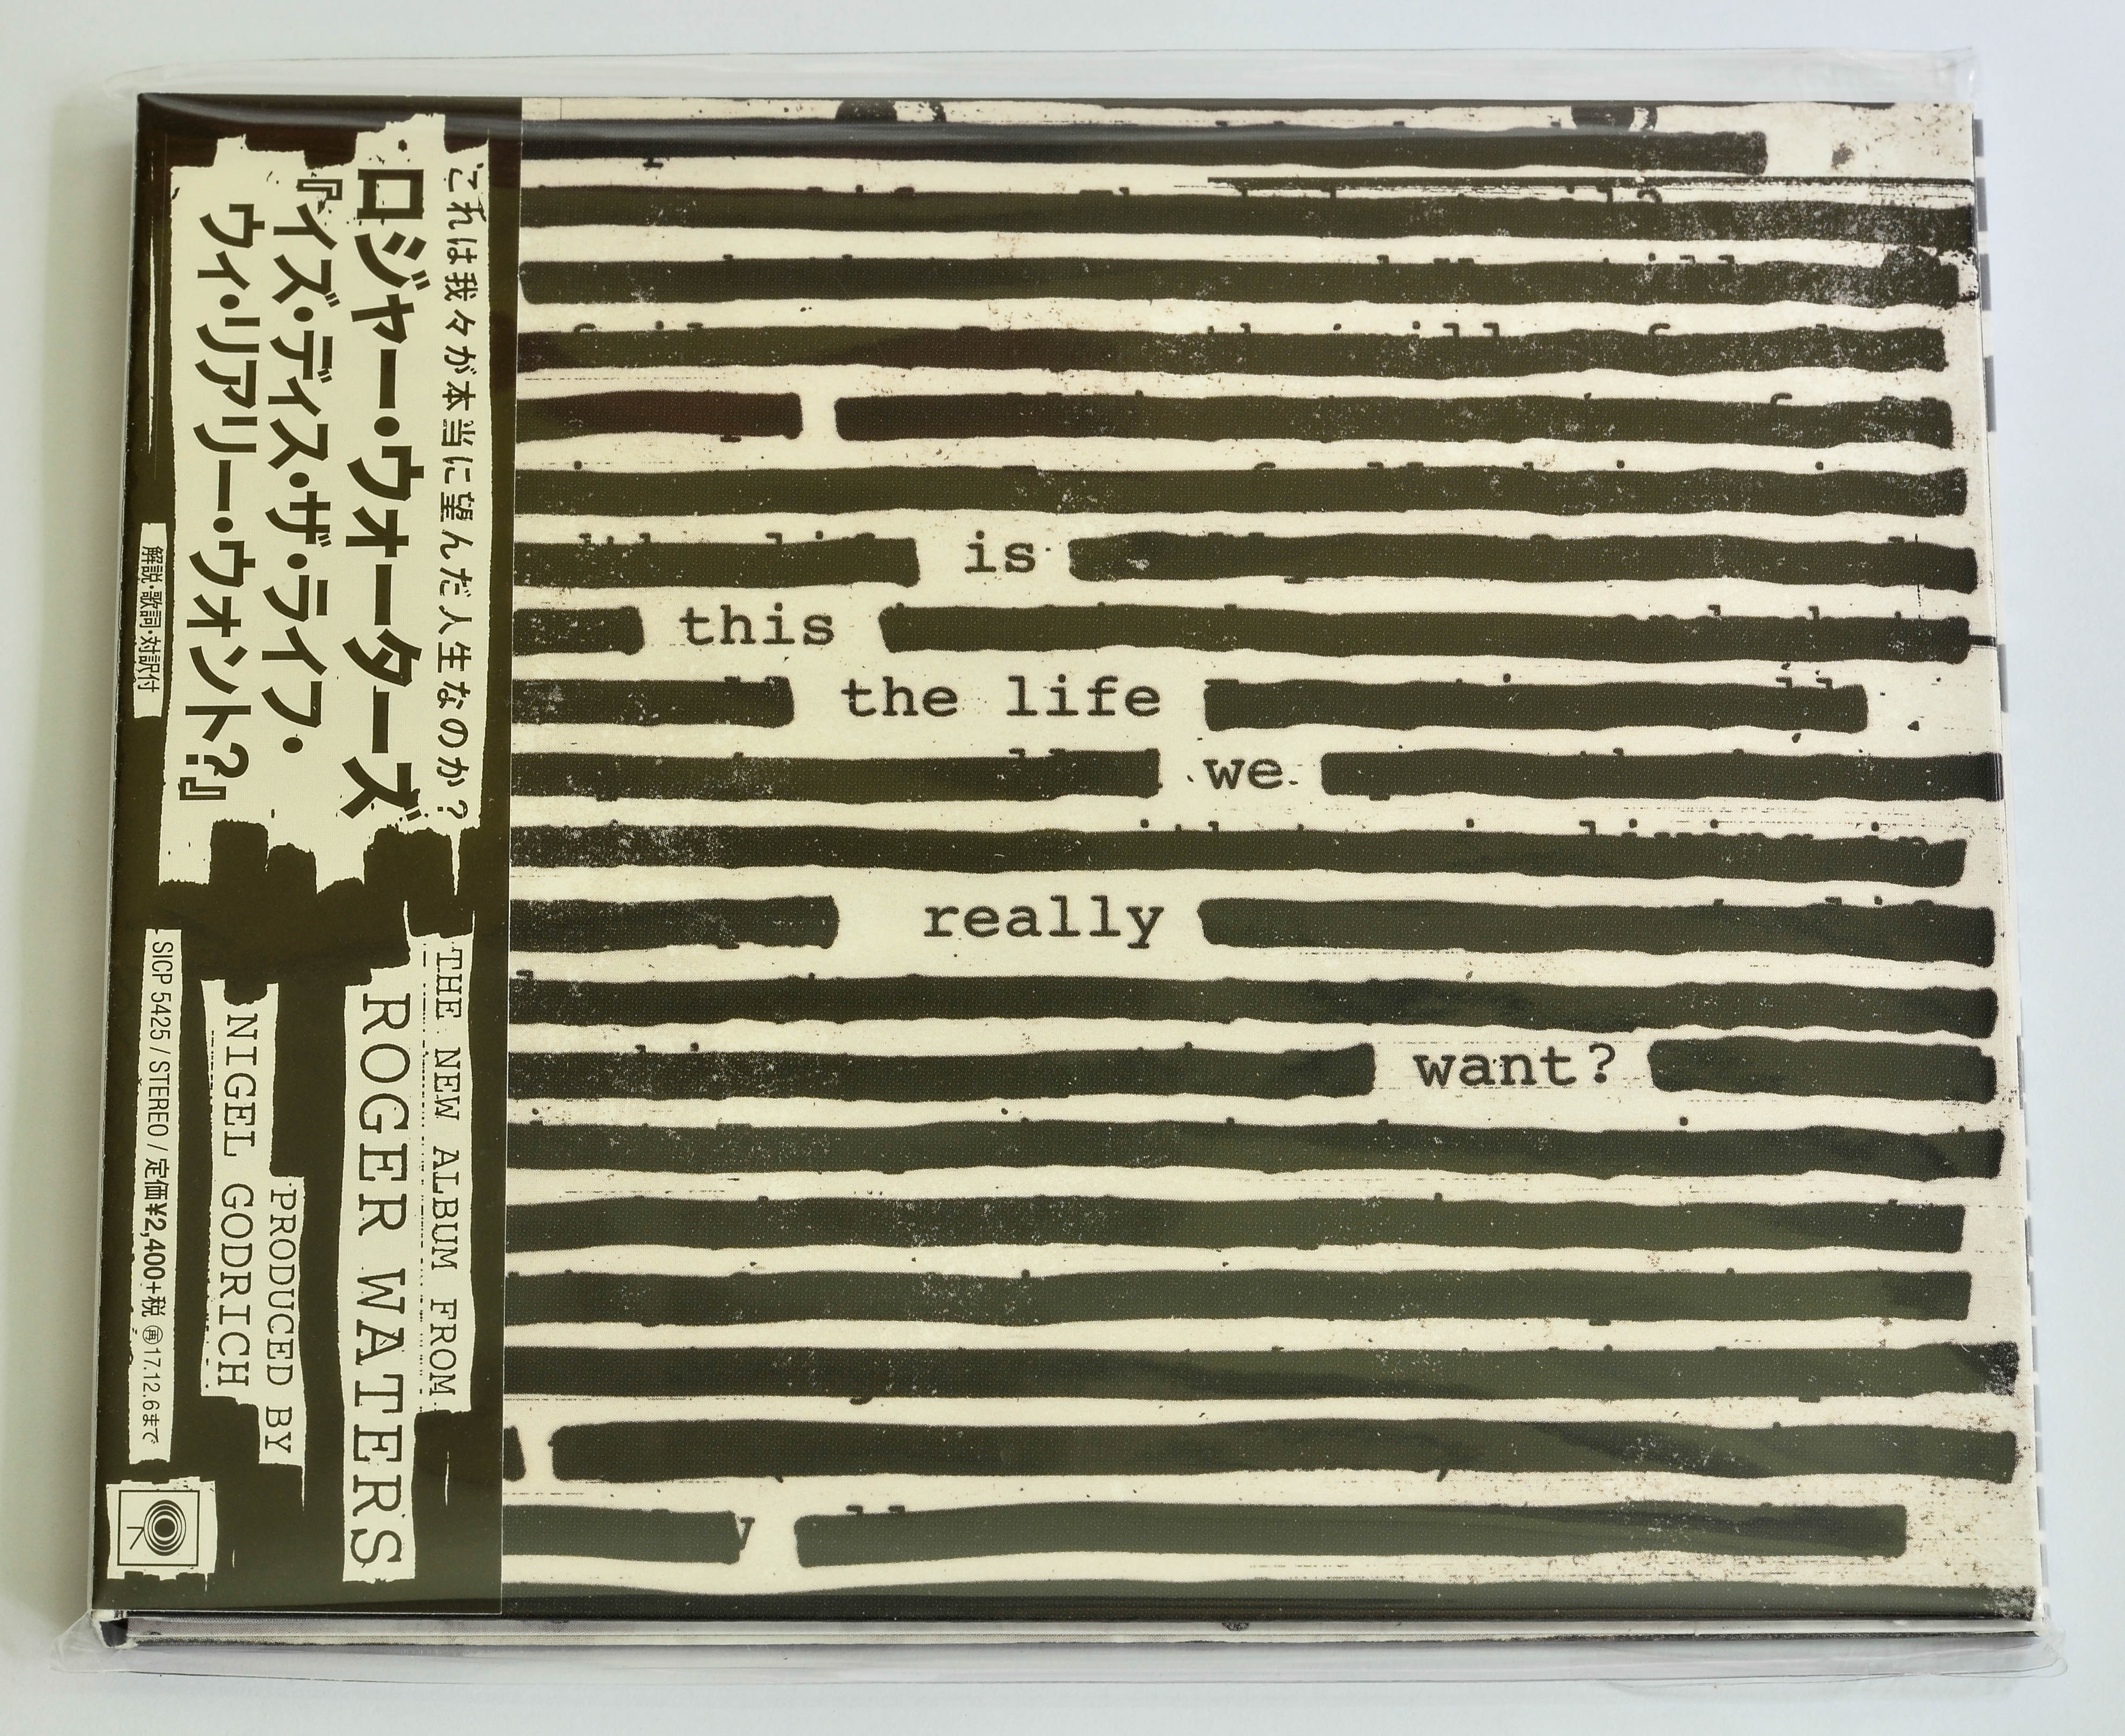 これは我々が本当に望んだ人生なのか?
ロジャー・ウォーターズ
『イズ・ディス・ザ・ライフ・
ウィ・リアリー・ウォント?』
解説・歌詞・対訳付
THE NEW ALBUM FROM
ROGER WATERS
PRODUCED BY
NIGEL GODRICH
SICP 5425 / STEREO / 定価¥2,400+税 再17.12.6まで
is
this
the life
we
really
want?